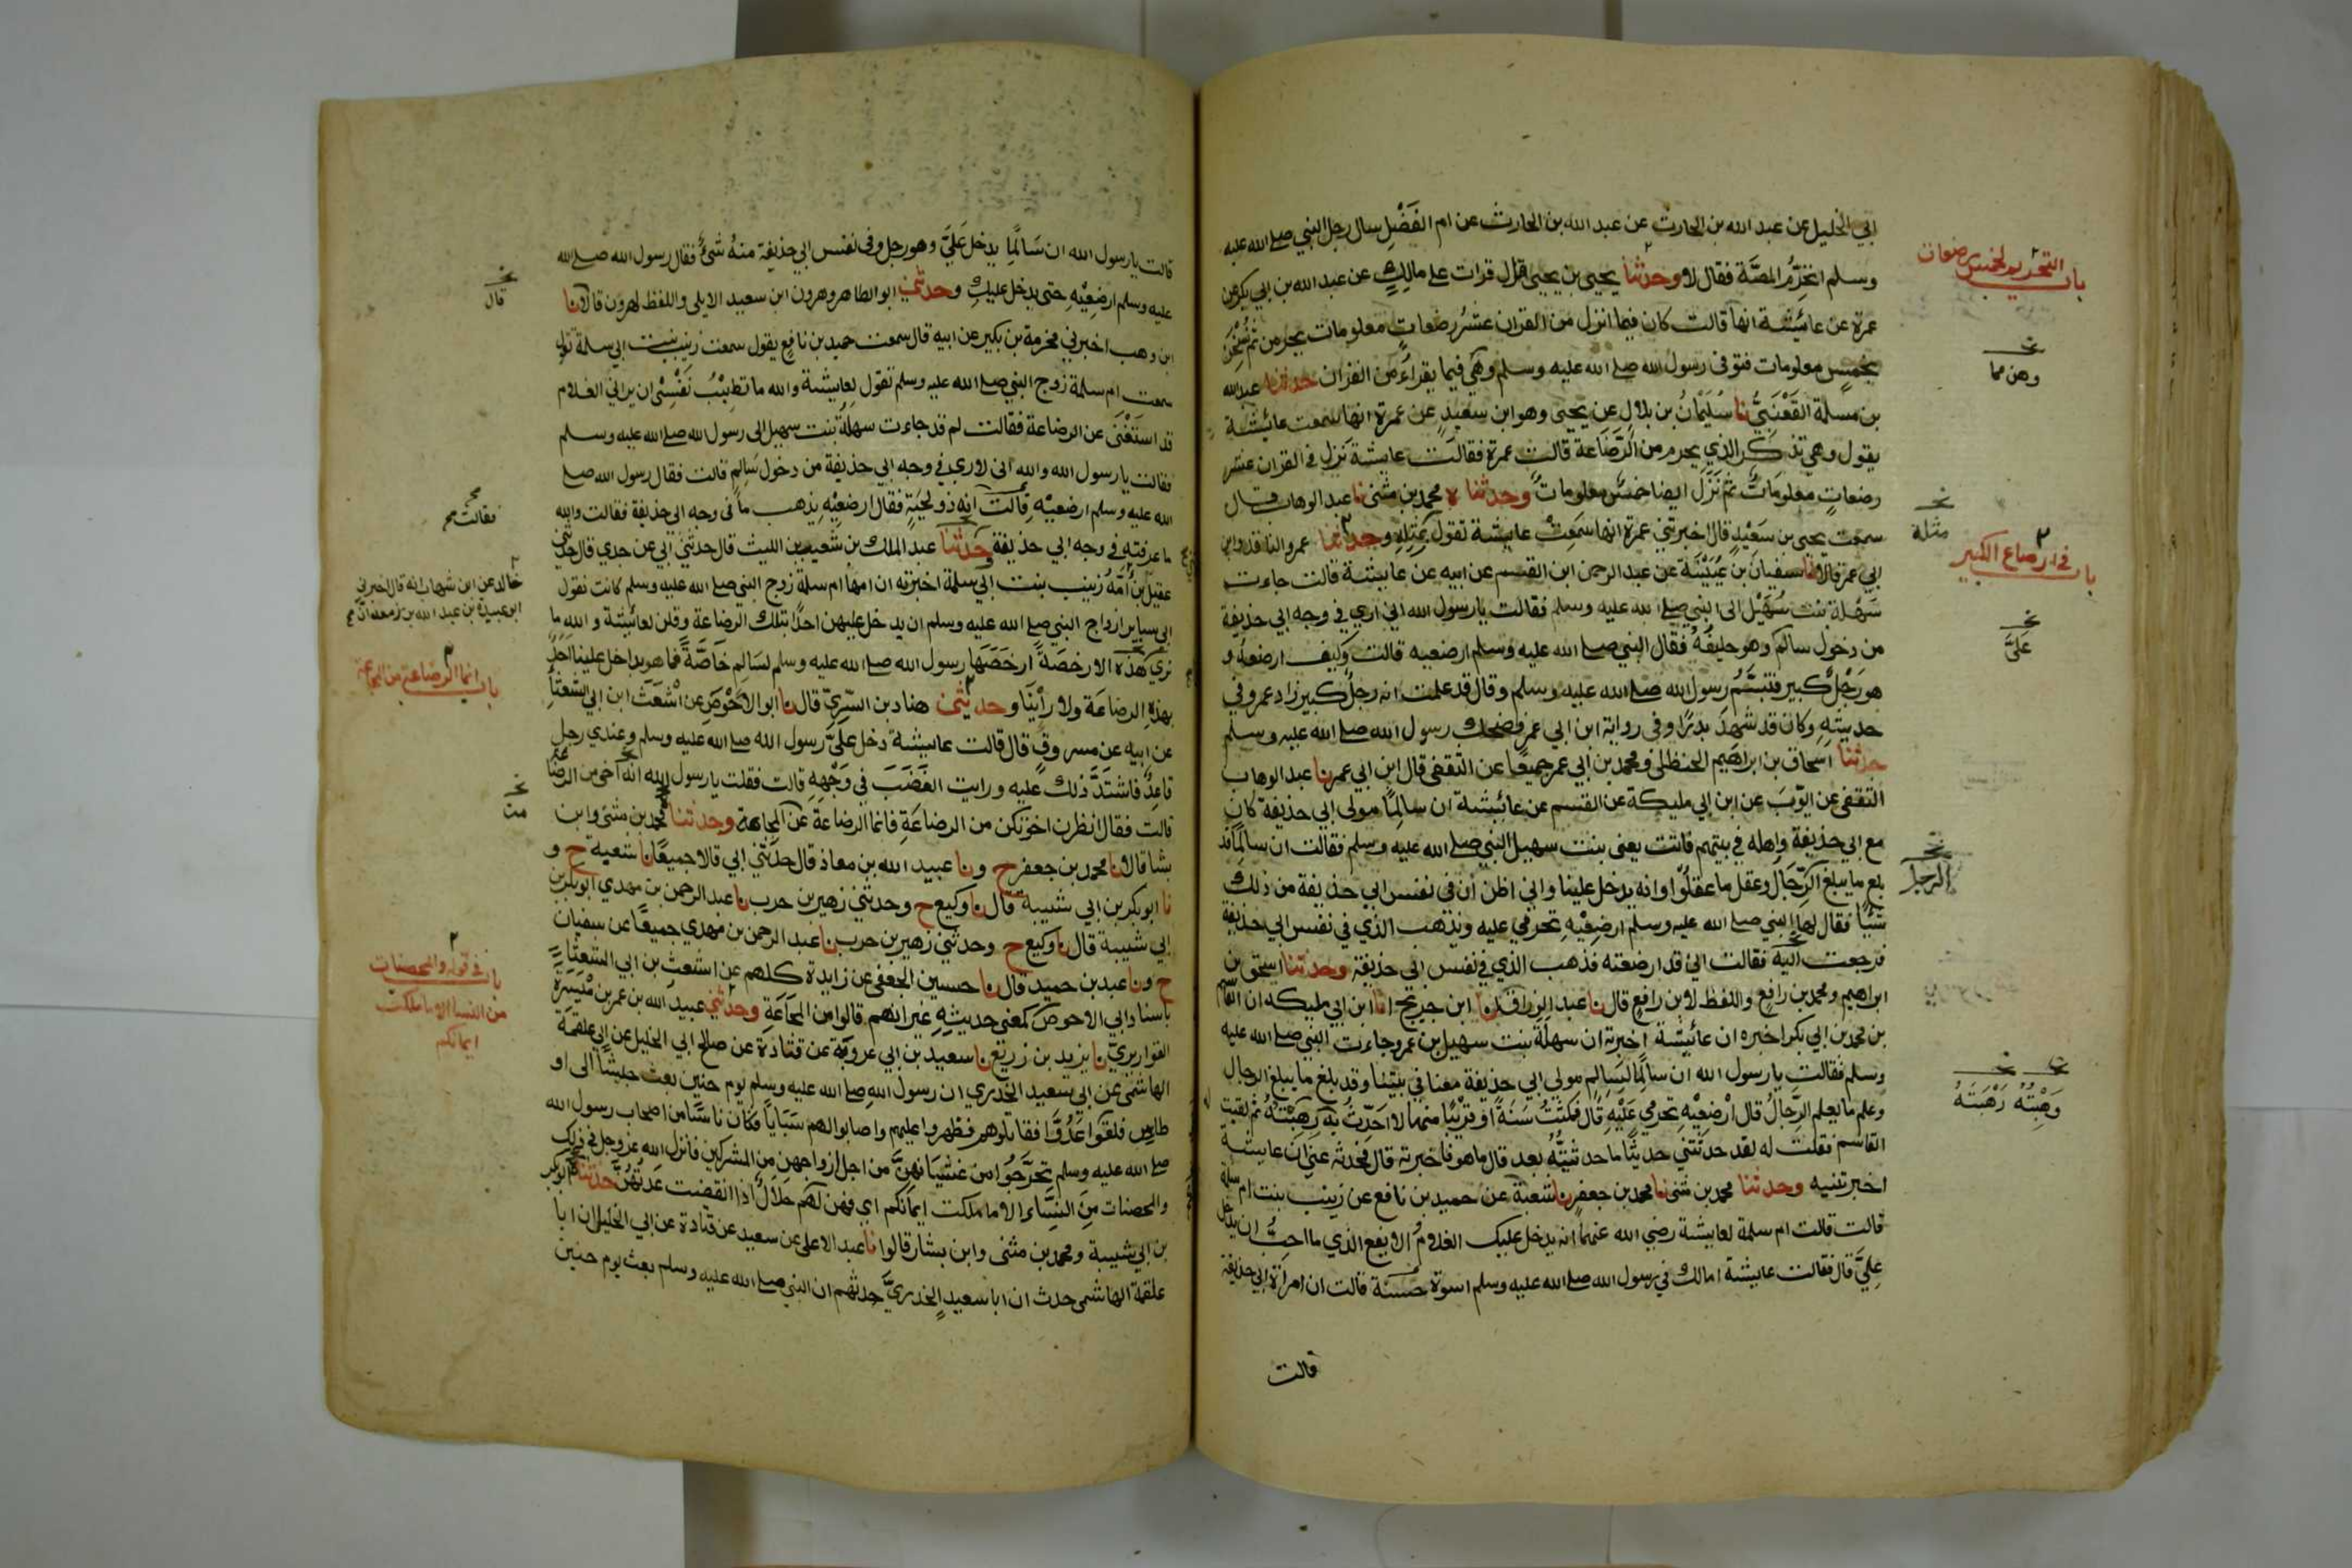 ابي الخليل عن عبد الله بن الحارث عن عبد الله بن الحارث عن ام الفَضْلِ سال رجل النبي صلے الله عليه
وسلم اتحَرِّمُ المصَّة فقال لا وحدثنا يحيى بن يحيى قال قرات على مالِكٍ عن عبد الله بن ابي بكر عن
عمرة عن عائشة انها قالت كان فيما انزل من القران عشرُ رضَعاتٍ معلومات يحرمن ثم نُسِخْنَ
بخمسٍ معلومات فتوفى رسول الله صلے الله عليه وسلم وهى فيما يقراءُ من القران حدثنا عبد الله
بن مسلمة القَعْنَبِيُّ نا سُلَيْمانُ بن بلالٍ عن يحيى وهو ابن سعيدٍ عن عمرة انها سمعت عائشة
يقول وهي تذكر الذي يحرم من الرَّضَاعة قالت عمرة فقالت عايشة نَزل في القران عشر
رضعاتٍ معلوماتٌ ثم نَزَلَ ايضا خمسٌ معلومات وحدثنا ه محمد بن مثنى نا عبد الوهاب قال
سمعت يحيى بن سَعِيْدٍ قال اخبرتني عمرة انها سَمِعَتْ عايشة تقول بمِثلِهِ وحدثنا عمرو الناقد وابن
ابي عمر قالا نا سفيان بن عُيَيْنَة عن عبد الرحمن ابن القسم عن ابيه عن عايشة قالت جاءت
سَهْلة بنت سُهَيْل الى النبي صلے الله عليه وسلم فقالت يا رسول الله اني ارى في وجه ابي حذيفة
من دخول سالمٍ وهو حليفُهُ فقال النبي صلے الله عليه وسلم ارضعيه قالت وكيف ارضعهُ و
هو رَجُلٌ كبير فتبسَّمُ رسول الله صلے الله عليه وسلم وقال قد علمت انه رجلٌ كبير زاد عمرو في
حديثِهِ وكان قد شهِدَ بدرًا وفى رواية ابن ابي عمر فضحك رسول الله صلے الله عليه وسلم
حدثنا اسحاق بن ابراهيم الحنظلى ومحمد بن ابي عمر جميعًا عن الثقفى قال ابن ابي عمر نا عبد الوهاب
الثقفى عن ايّوبَ عن ابن ابي مليكة عن القسم عن عائشة ان سالِمًا مولى ابي حذيفة كان
مع ابي حذيفة واهله في بيتهم فاتت يعنى بنت سهيل النبي صلے الله عليه وسلم فقالت ان سالمًا قد
بلغ ما يبلغ الرّجَال وعقل ما عقلُوْا وانه يدخل علينا واني اظن ان فى نفس ابي حذيفة من ذلك
شيًا فقال لها النبي صلے الله عليه وسلم ارضِعِيْهِ تحرمي عليه ويذهب الذي في نفس ابي حذيفة
فرجعت اليه فقالت اني قد ارضعته فذهب الذي في نفس ابي حذيفة وحدثنا اسحق بن
ابراهيم ومحمد بن رافع واللفظ لابن رافع قال نا عبد الرزاق قال نا ابن جريج انا ابن ابي مليكه ان القسم
بن محمد بن ابي بكر اخبره ان عائيشة اخبرته ان سهلة بنت سهيل بن عمرو جاءت النبي صلے الله عليه
وسلم فقالت يا رسول الله ان سالمًا لِسَالمٍ مولى ابي حذيفة معنا في بيتنا وقد بلغ ما يبلغ الرجال
وعلم ما يعلم الرِّجالُ قال اْرْضِعِيْهِ تحرمي عَلَيْهِ قال فمكَثْتُ سَنَةً او قريْبًا منها لا احَدِّثُ به رَهِبْتُهُ ثم لقيت
القاسم فقلت له لقد حدثتني حديثًا ما حدثتهُ بعد قال ما هو فاخبرته قال فحدثه عني ان عايشة
اخبرتنيه وحدثنا محمد بن مثنى نا محمد بن جعفر نا شعبة عن حميد بن نافع عن زينب بنت ام سلمة
قالت قالت ام سلمة لعايشة رضي الله عنهما انه يدخل عليك الغلامُ الايفع الذي ما احبُّ ان يدخل
عليَّ قال فقالت عايشة امالك في رسول الله صلے الله عليه وسلم اسوة حسنة قالت ان امراة ابي حذيفة
قالت
باب التحريم بخمس رضعات
وهن مما
مثله
باب في ارضاع الكبير
عَلَيَّ
الرجل
وَهِبْتُهُ رَهْبَتَهُ
قالت يا رسول الله ان سَالمًا يدخل عَلَيَّ وهو رجل وفى نفس ابي حذيفة منهُ شَئٌ فقال رسول الله صلے الله
عليه وسلم ارضِعِيْهِ حتى يدخل عليكِ وحدثني ابو الطاهر وهرون ابن سعيد الايلى واللفظ لهرون قالا نا
ابن وهب اخبرني مخرمة بن بكير عن ابيه قال سمعت حميد بن نافع يقول سمعت زينب بنت ابي سلمة تقول
سمعت ام سلمة زوج النبي صلے الله عليه وسلم تقول لعايشة والله ما تطيْبُ نَفْسِىْ ان يراني الغلام
قد استَغْنَى عن الرضاعة فقالت لم قد جاءت سهلةُ بنت سهيل الى رسول الله صلے الله عليه وسلم
فقالت يا رسول الله والله اني لارى في وجه ابي حذيفة من دخول سَالمٍ قالت فقال رسول الله صلے
الله عليه وسلم ارضعيْه قالت انه ذو لحيَةٍ فقال ارضعِيْهِ يذهب ما في وجه ابي حذيفة فقالت والله
ما عرفته في وجه ابي حذيفة وحدثنا عبد الملك بن شعيب بن الليث قال حدثني ابي عن جدي قال حدثني
عقيل بن اُمَّهُ زينب بنت ابي سلمة اخبرته ان امها ام سلمة زوج النبي صلے الله عليه وسلم كانت تقول
ابى ساير ازواج النبي صلے الله عليه وسلم ان يدخل عليهن احدًا بتلك الرضاعة وقلن لعائشة والله ما
نرى هذه الا رخصَةً ارخَصَهَا رسول الله صلے الله عليه وسلم لسَالِمٍ خَاصَّةً فما هو بداخل علينا احدٌ
بهذِهِ الرضاعَة ولا رأْيَنَا وحدثني هناد بن السَّرِيِّ قال نا ابو الاحْوَصِ عن اشْعَثَ ابن ابي الشعثَاءِ
عن ابيه عن مسروقٍ قال قالت عايشة دخل عليَّ رسول الله صلے الله عليه وسلم وعندي رجل
قاعدٌ فاشتَدَّ ذلك عليه ورايت الغَضَبَ في وَجْهِهِ قالت فقلت يا رسول الله انه اخى من الرضاعة
قالت فقال انظرن اخوتكن من الرضاعَةِ فانما الرضَاعَةَ عَنْ المجاعة وحدثنا محمد بن مثنى وابن
بشار قالا نا محمد بن جعفر ح ونا عبيد الله بن معاذ قال حدّثني ابي قالا جميعًا نا شعبة ح و
نا ابو بكر بن ابي شيبة قال نا وكيع ح وحدثني زهير بن حرب نا عبد الرحمن بن مهدي ابو بكر بن
ابي شيبة قال نا وكيع ح وحدثني زهير بن حرب نا عبد الرحمن بن مهدي جميعًا عن سفيان
ح ونا عبد بن حميد قال نا حسين الجعفى عن زايدة كلهم عن اشعث بن ابي الشعثاء
باسناد ابي الاحوص كمعنى حديثِهِ غير انهم قالوا من المجَاعَةِ وحدثني عبيد الله بن عمر بن مَيْسَرَةَ
القواريري نا يزيد بن زريع نا سعيد بن ابي عروبَة عن قتادَة عن صالح ابي الخليل عن ابي علقمة
الهاشمى عن ابي سعيد الخدري ان رسول الله صلے الله عليه وسلم يوم حنين بعث جيشًا الى او
طاس فلقوا عَدُوًّا فقاتلوهم فظهروا عليهم واصابوا لهم سَبَايَا فكان ناسًا من اصحاب رسول الله
صلے الله عليه وسلم تحرَّجُوا من غشيَانهنَّ من اجل ازواجهن من المشركين فانزل الله عز وجل في ذلك
والمحصنات مِنَ النِّسَاءِ الا ما ملكت ايمانكم اي فهن لَكُم حَلالٌ اذا انقضت عدتُهُنَّ حدثنا ابو بكر
بن ابي شيبة ومحمد بن مثنى وابن بشار قالوا نا عبد الاعلى عن سعيد عن قتادة عن ابي الخليل ان ابا
علقمة الهاشمى حدث ان ابا سعيدٍ الخدريَّ حدثهم ان النبي صلے الله عليه وسلم بعث يوم حنين
قال
فقالت
خالد عن ابن شهاب انه قال اخبرني
ابو عبيدة بن عبد الله بن زمعه ان
باب انما الرضاعة من المجاعة
من
باب في قوله والمحصنات
من النسا الا ما ملكت
ايمانكم